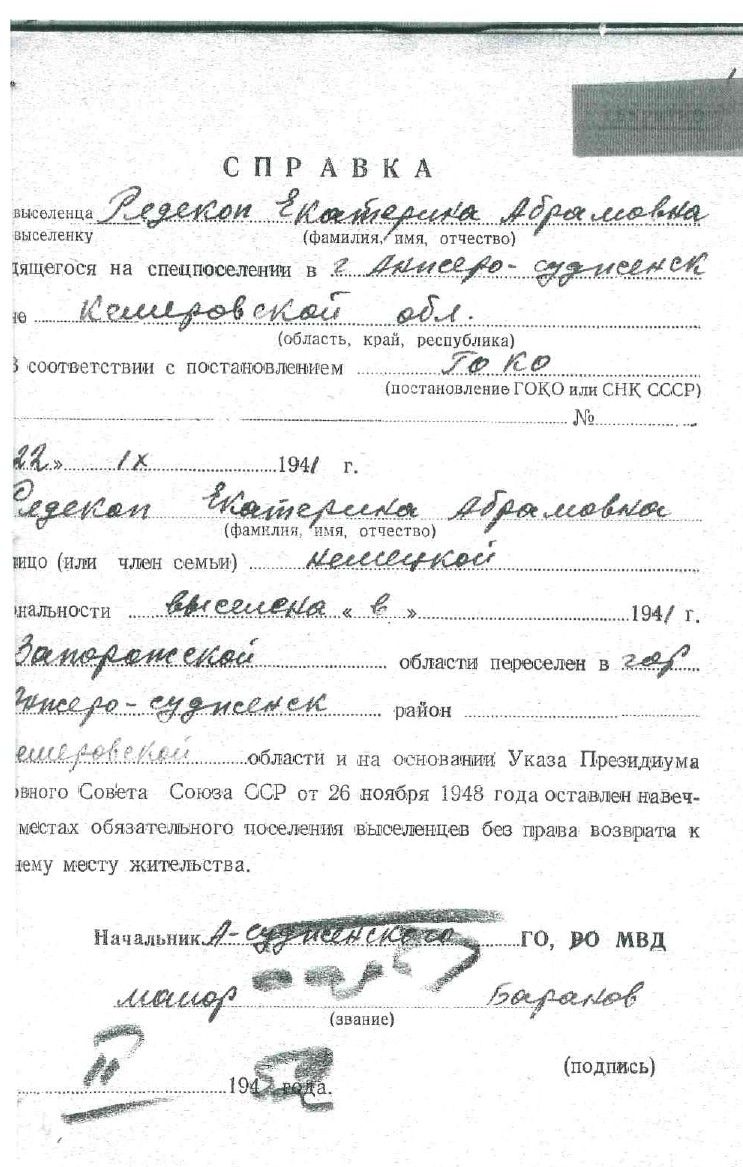 СПРАВКА
выселенца Редекоп Екатерина Абрамовна
выселенку (фамилия, имя, отчество)
дящегося на спецпоселении в г Анжеро-судженск
не Кемеровской обл.
(область, край, республика)
В соответствии с постановлением ГОКО
(постановление ГОКО или СНК СССР)
№
22» IX 1941 г.
Редекоп Екатерина Абрамовна
(фамилия, имя, отчество)
лицо (или член семьи) немецкой
нальности выселена « в » 1941 г.
Запорожской области переселен в гор
Анжеро-судженск район
емеровской области и на основании Указа Президиума
овного Совета Союза ССР от 26 ноября 1948 года оставлен навеч-
местах обязательного поселения выселенцев без права возврата к
нему месту жительства.
Начальник А-судженского ГО, РО МВД
майор Баранов
(звание)
(подпись)
194 года.